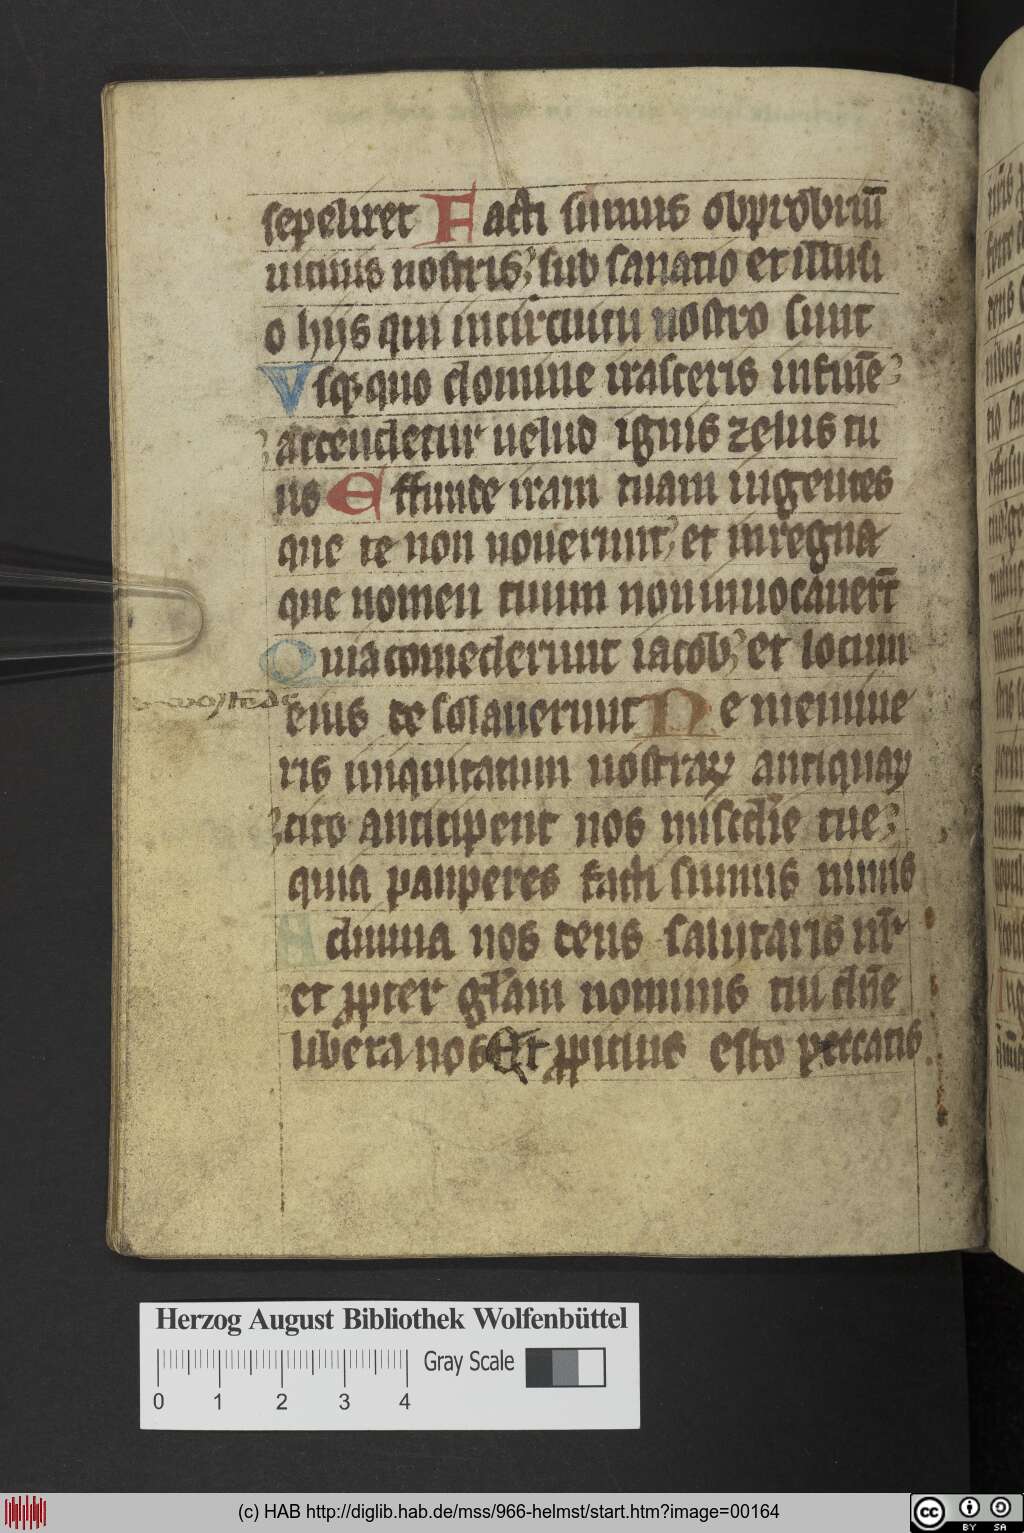 sepeliret Facti sumus obprobriū
uicinis nostris; sub sanatio et illusi
o hijs qui incircuitu nostro sunt
Vsqꝫquo domine irasceris infinē;
accendetur uelud ignis zelus tu
us Effunde iram tuam ingentes
que te non nouerunt; et inregna
que nomen tuum noninuocauert̄
Quia comederunt iacob; et locum
eius desolauerunt Ne memine
ris iniquitatum nostraꝝ antiquaꝝ
cito anticipent nos miscd̄ie tue;
quia pauperes facti sumus nimis
Adiuua nos deus salutaris nr̄
et ꝓpter gl̄am nominis tui dn̄e
libera nos Et ꝓpitius esto peccatis
Herzog August Bibliothek Wolfenbüttel
Gray Scale
0 1 2 3 4
(c) HAB http://diglib.hab.de/mss/966-helmst/start.htm?image=00164
cc BY SA